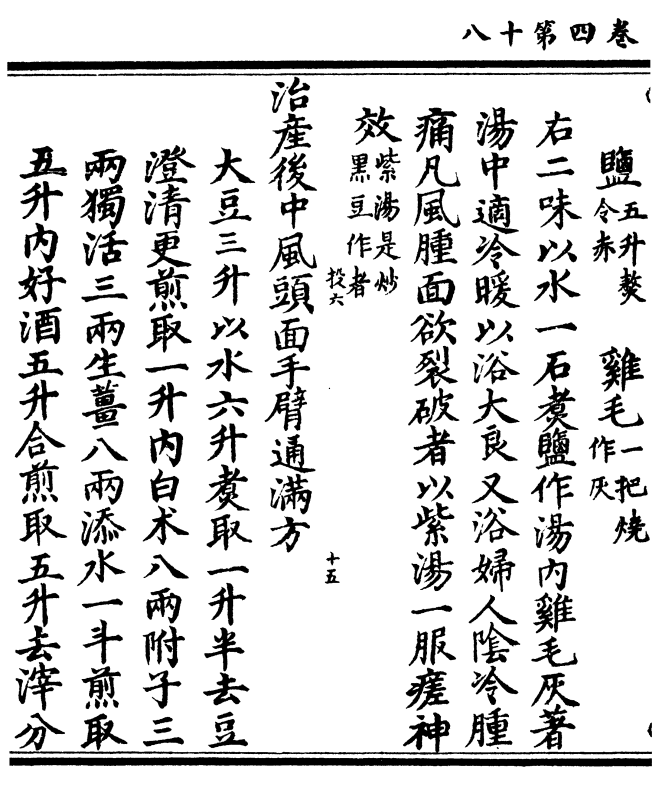 卷四第十八
鹽五升熬令赤 雞毛一把燒作灰
右二味以水一石煑鹽作湯内雞毛灰著
湯中適冷暖以浴大良又浴婦人陰冷腫
痛凡風腫面欲裂破者以紫湯一服瘥神
效紫湯是炒黑豆作者
治産後中風頭面手臂通滿方
投六
十五
大豆三升以水六升煑取一升半去豆
澄清更煎取一升内白术八兩附子三
兩獨活三兩生薑八兩添水一斗煎取
五升内好酒五升合煎取五升去滓分